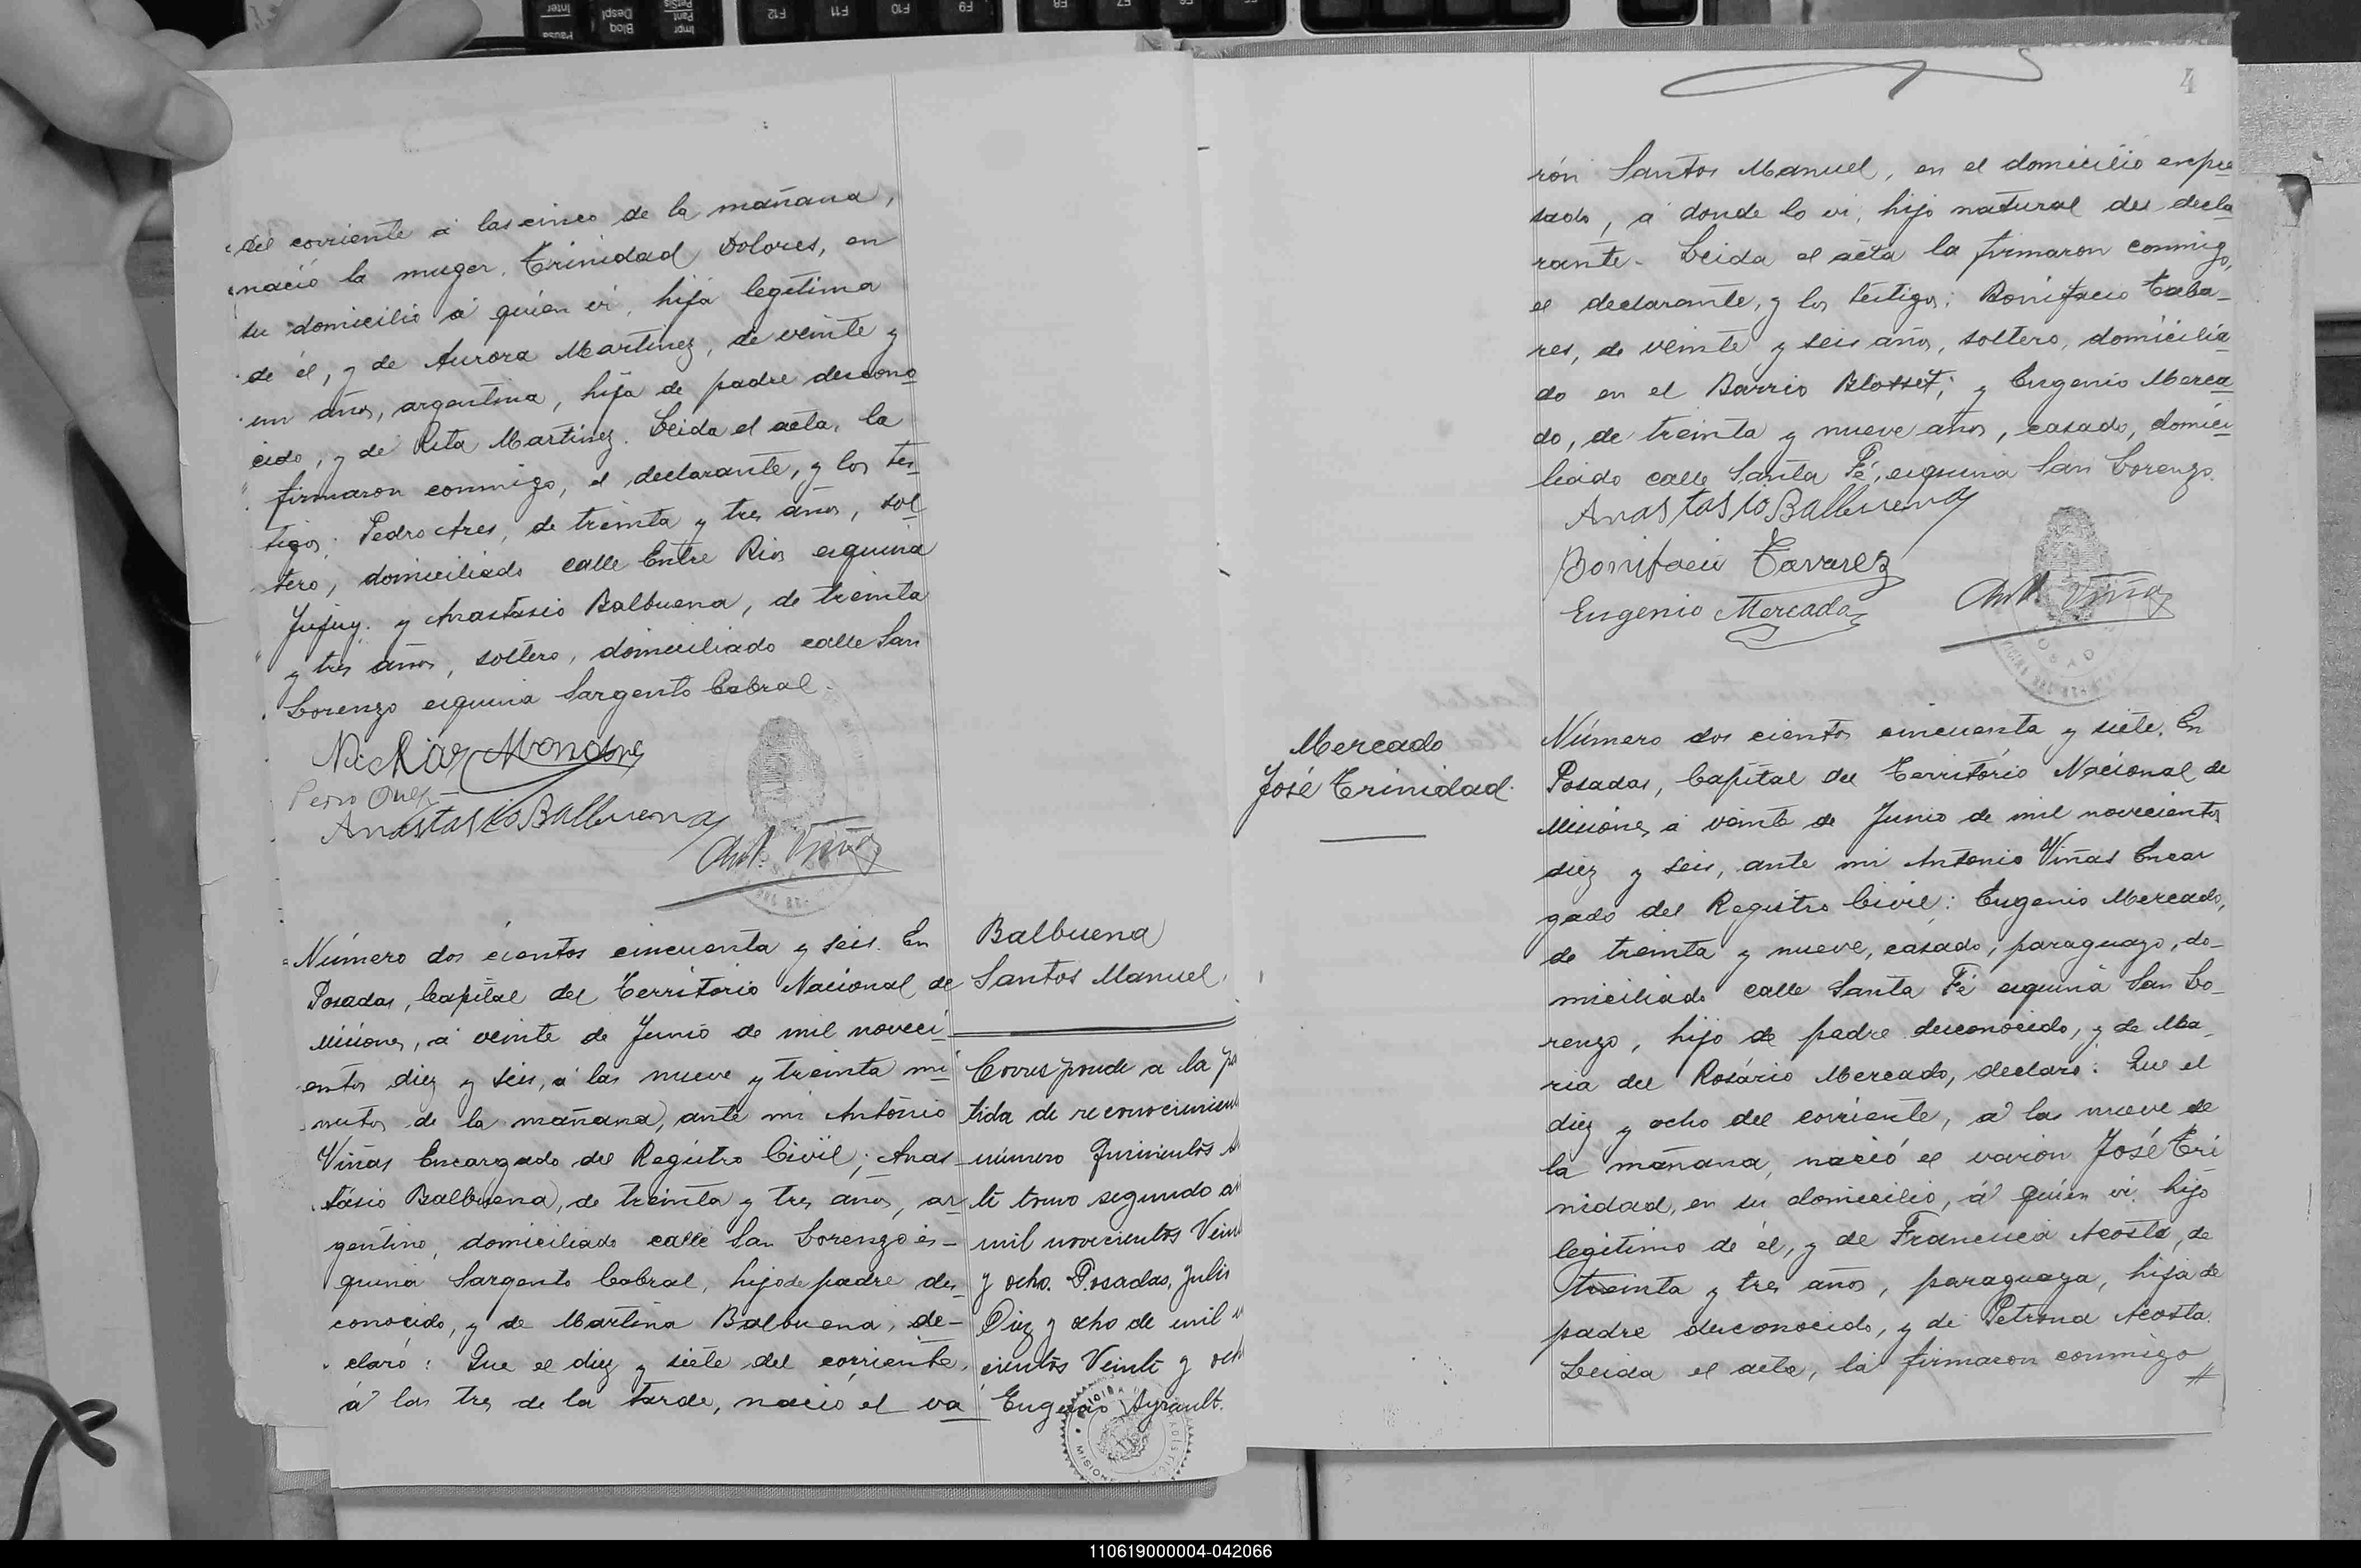 del corriente á las cinco de la mañana,
nació la muger, Trinidad Dolores, en
su domicilio á quien vi, hija legítima
de él, y de Aurora Martinez, de veinte y
un años, argentina, hija de padre descono
cido, y de Rita Martinez. Leida el acta, la
firmaron conmigo, el declarante, y los tes
tigos: Pedro Ares, de treinta y tres años, sol
tero, domiciliado calle Entre Rios esquina
Jujuy. y Anastasio Balbuena, de treinta
y tres años, soltero, domiciliado calle San
Lorenzo esquina Sargento Cabral.
Anastasio Balbuena
Ant. Viñas
Número dos cientos cincuenta y seis. En
Posadas, Capital del Territorio Nacional de
Misiones, á veinte de Junio de mil noveci
entos diez y seis, á las nueve y treinta mi
nutos de la mañana, ante mi Antonio
Viñas Encargado del Registro Civil; Anas
tásio Balbuena, de treinta y tres años, ar
gentino, domiciliado calle San Lorenzo es-
quina Sargento Cabral, hijo de padre des
conocido, y de Martina Balbuena, de-
claró: Que el diez y siete del corriente,
á las tres de la tarde, nació el va
Balbuena
Santos Manuel
Corresponde a la
tida de reconocimien
número Quinientos
te tomo segundo
mil novecientos Vein
y ocho. Posadas, Julio
Diez y ocho de mil
cientos Veinte y och
Eugenio Ayrault.
4
rón Santos Manuel, en el domicilio expre
sado, á donde lo vi, hijo natural del decla
rante. Leida el acta la firmaron conmigo,
el declarante, y los testigos: Bonifacio Taba-
res, de veinte y seis años, soltero, domicilia
do en el Barrio Blosset; y Eugenio Merca
do, de treinta y nueve años, casado, domici
liado calle Santa Fé, esquina San Lorenzo.
Anastasio Balbuena
Bonifacio Tavarez
Eugenio Mercado
Ant. Viñas
Mercado
José Trinidad.
Número dos cientos cincuenta y siete. En
Posadas, Capital del Território Nacional de
Misiones á veinte de Junio de mil novecientos
diez y seis, ante mi Antonio Viñas Encar
gado del Registro Civil: Eugenio Mercado,
de treinta y nueve, casado, paraguayo, do-
miciliado calle Santa Fé esquina San Lo-
renzo, hijo de padre desconocido, y de Ma-
ria del Rosário Mercado, declaró: Que el
diez y ocho del corriente, á las nueve de
la mañana, nació el varon José Tri
nidad, en su domicilio, á quien vi, hijo
legítimo de él, y de Francisca Acosta, de
treinta y tres años, paraguaya, hija de
padre desconocido, y de Petrona Acosta.
Leida el acta, la firmaron conmigo
110619000004-042066